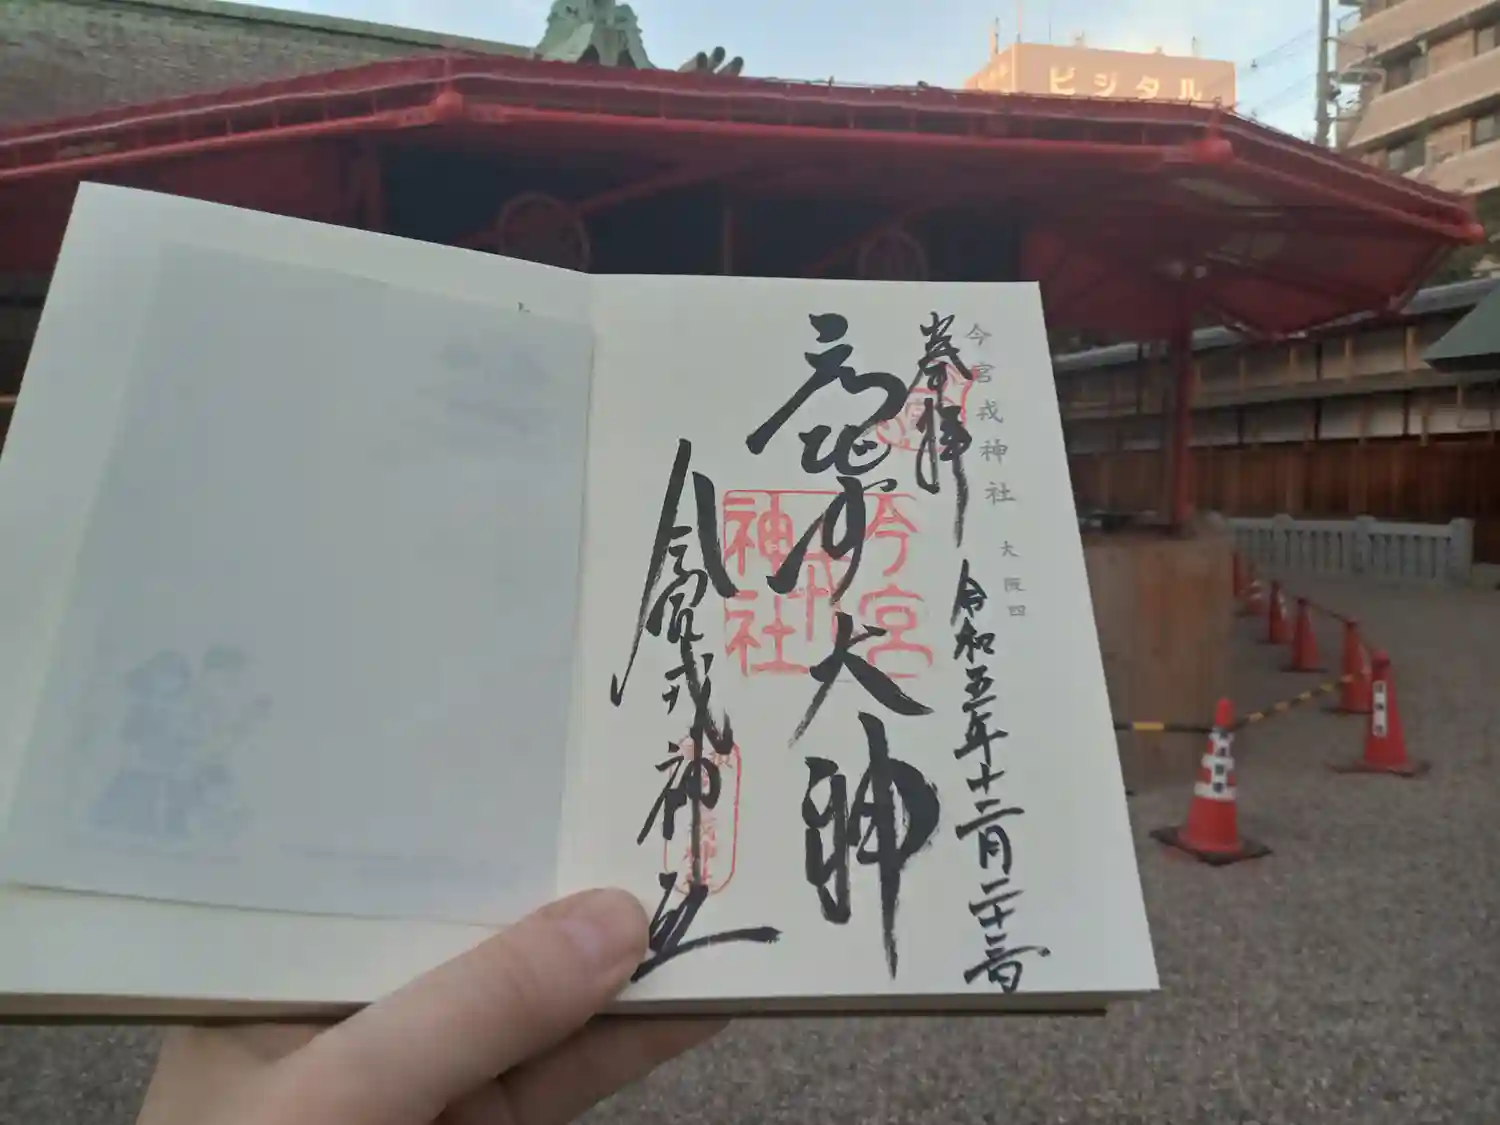 ビジタル
今宮戎神社 大阪四
奉拝
令和五年十二月二十三日
えびす大神
今宮戎神社
今宮
戎
神社